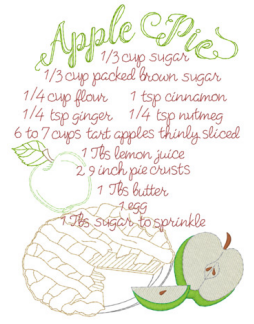 Apple Pie
1/3 cup sugar
1/3 cup packed brown sugar
1/4 cup flour 1 tsp cinnamon
1/4 tsp ginger 1/4 tsp nutmeg
6 to 7 cups tart apples thinly sliced
1 Tbs lemon juice
2 9 inch pie crusts
1 Tbs butter
1 egg
1 Tbs sugar to sprinkle